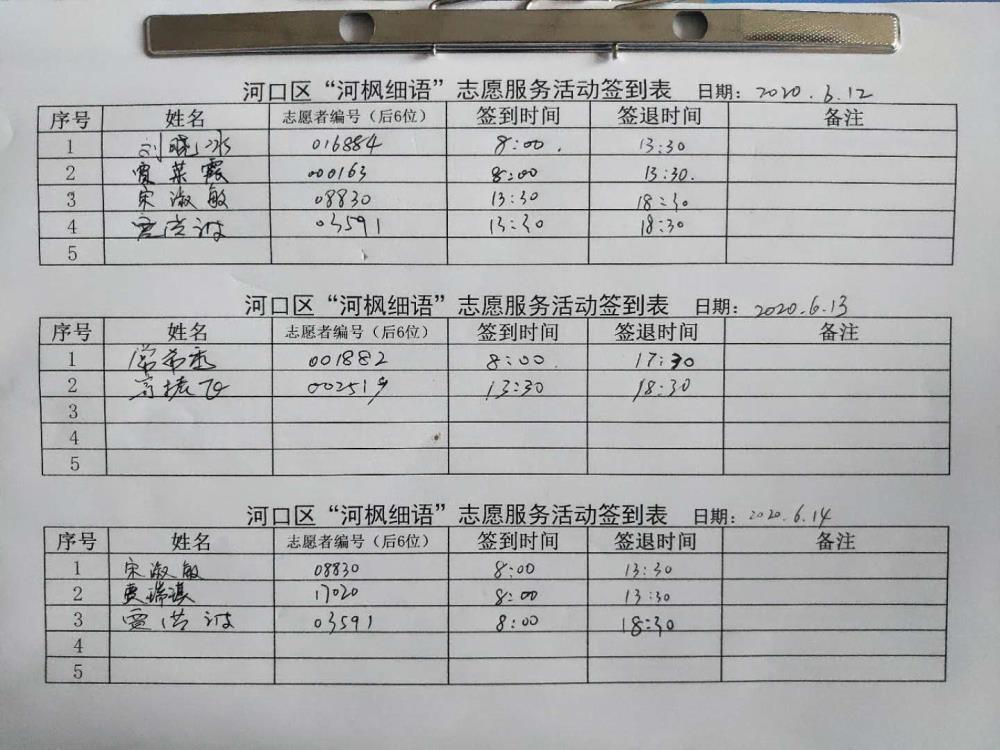 河口区“河枫细语”志愿服务活动签到表 日期：2020.6.12
序号 姓名 志愿者编号（后6位） 签到时间 签退时间 备注
1 刘晓冰 016884 8:00. 13:30
2 贾荣霞 000163 8:00 13:30.
3 宋淑敏 08830 13:30 18:30
4 03591 13:30 18:30
5
河口区“河枫细语”志愿服务活动签到表 日期：2020.6.13
序号 姓名 志愿者编号（后6位） 签到时间 签退时间 备注
1 001882 8:00. 17:30
2 002519 13:30 18:30
3
4
5
河口区“河枫细语”志愿服务活动签到表 日期：2020.6.14
序号 姓名 志愿者编号（后6位） 签到时间 签退时间 备注
1 宋淑敏 08830 8:00 13:30
2 17020 8:00 13:30
3 03591 8:00 18:30
4
5